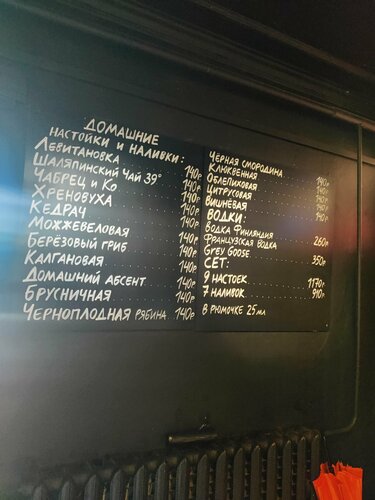 Домашние
настойки и наливки:
Левитановка 140р
Шаляпинский чай 39° 140р
Чабрец и Ко 140р
Хреновуха 140р
Кедрач 140р
Можжевеловая 140р
Берёзовый гриб 140р
Калгановая 140р
Домашний абсент 140р
Брусничная 140р
Черноплодная рябина 140р
Чёрная смородина 140р
Клюквенная 140р
Облепиховая 140р
Цитрусовая 140р
Вишнёвая 140р
Водки:
Водка Финляндия 260р
Французская водка
Grey Goose 350р
Сет:
9 настоек 1170р
7 наливок 910р
В рюмочке 25 мл